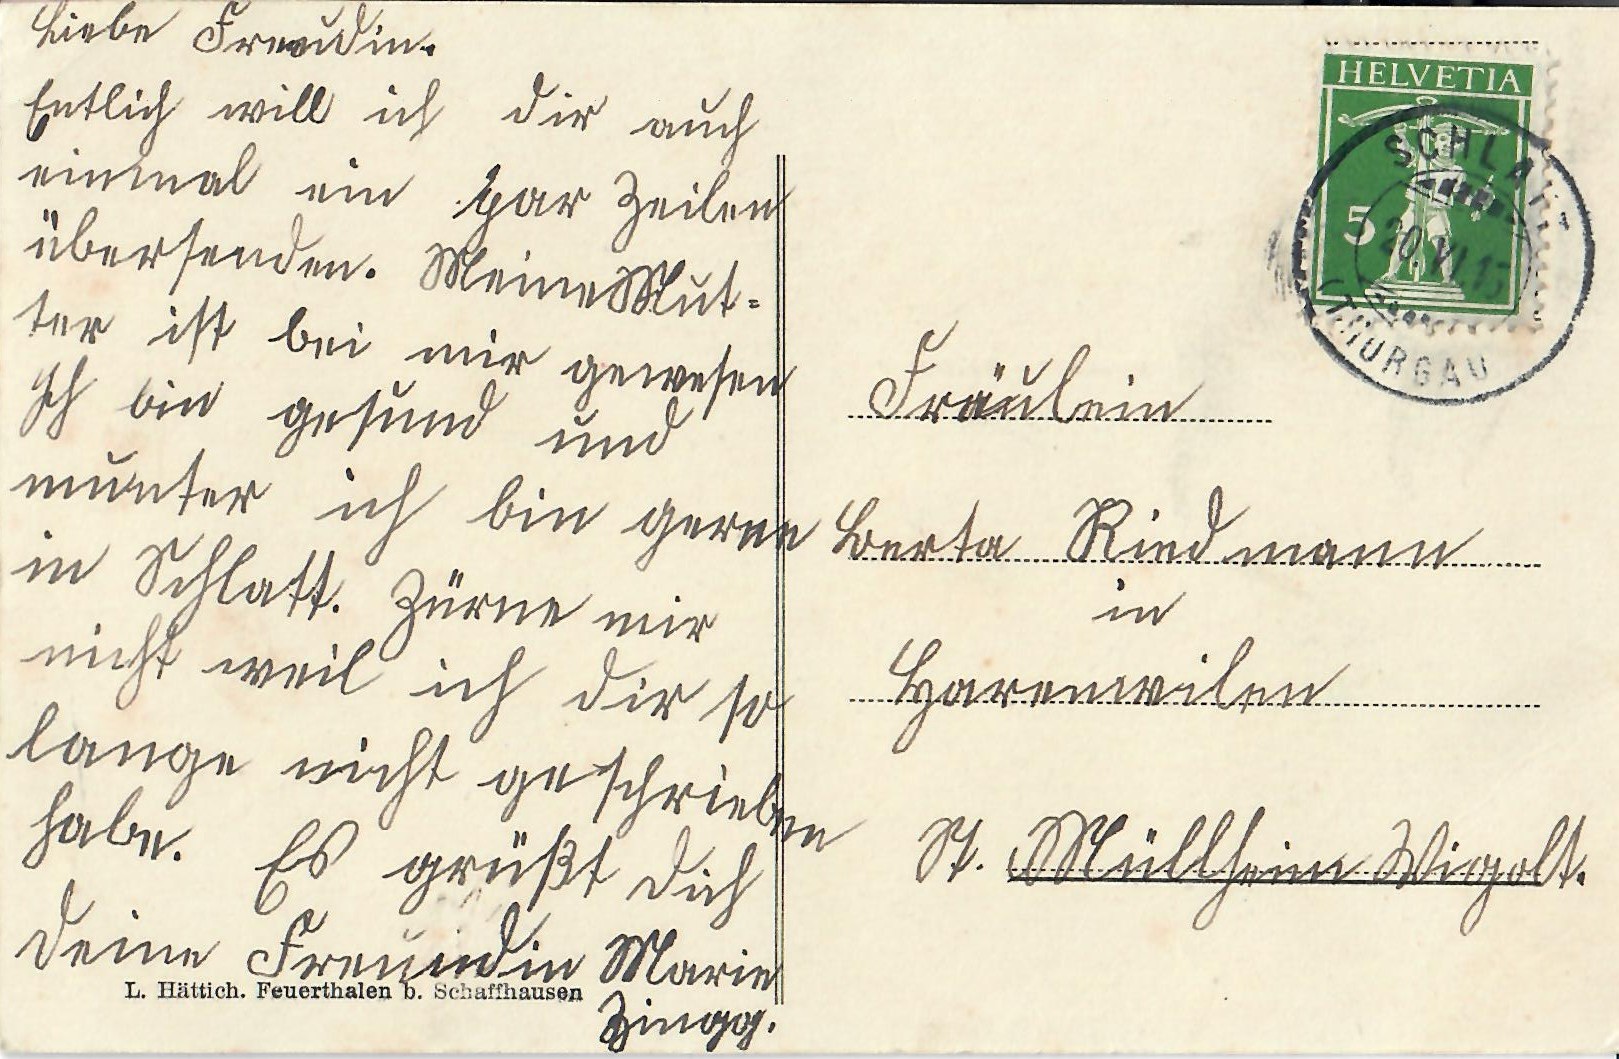 Liebe Freundin.
Entlich will ich dir auch
einmal ein par Zeilen
übersenden. Meine Mut-
ter ist bei mir gewesen
Ich bin gesund und
munter ich bin gerne
in Schlatt. Zürne mir
nicht weil ich dir so
lange nicht geschrieben
habe. Es grüßt dich
deine Freundin Marie
Zingg.
L. Hättich. Feuerthalen b. Schaffhausen
HELVETIA
5
SCHLATT
20.VI.
(THURGAU
Fräulein
Berta Riedmann
in
Harenwilen
St. Müllheim Wigolt.